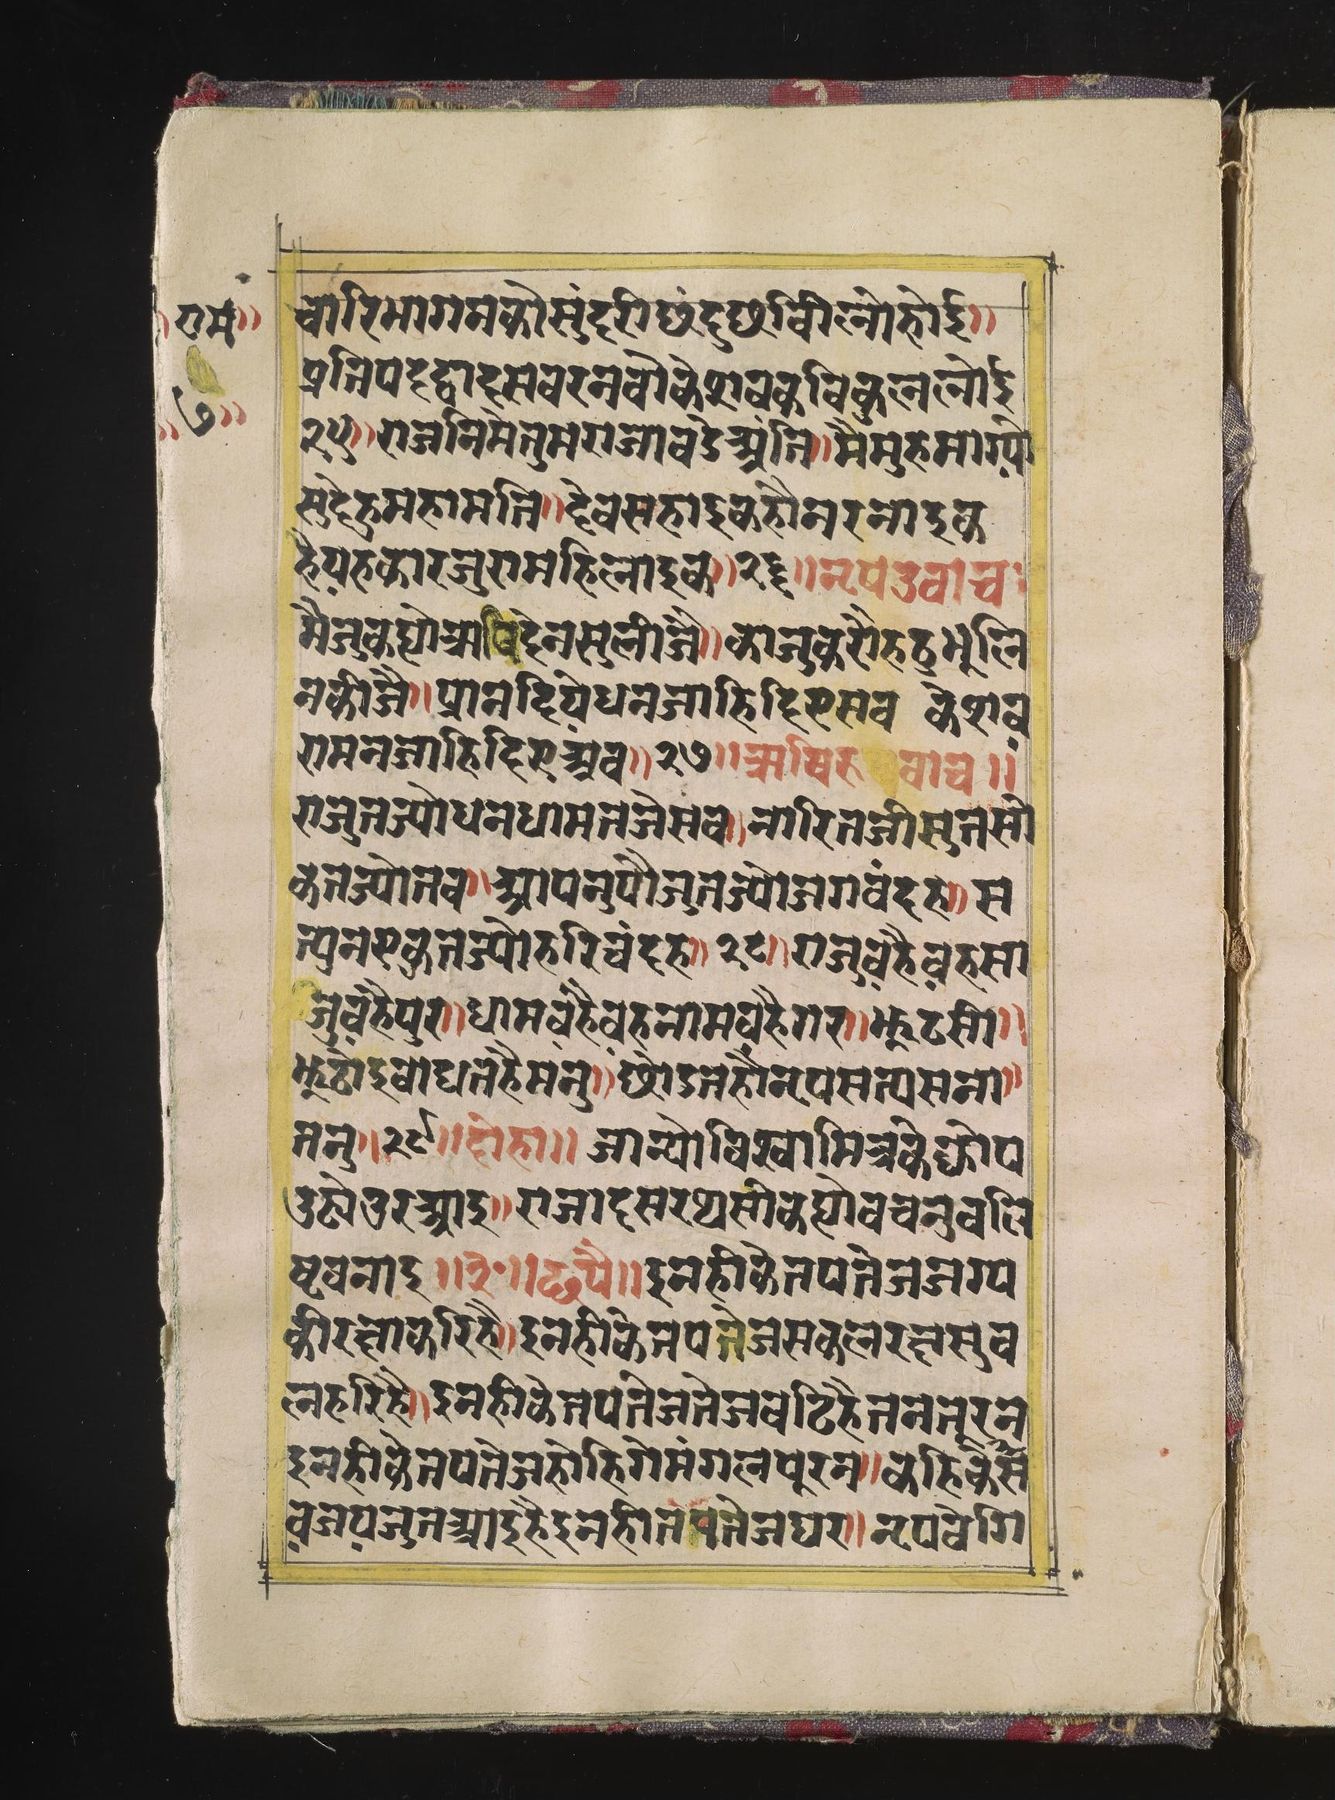 राम॥
॥७॥
चारिभागनकौसुंदरीछंदुछबीलोहोई॥
प्रतिपदद्वादसबरनबौकेशवकविकुललोई
२५॥राजनिमेंतुमराजाबडेअति॥मैमुहमाग्यो
सुदेहुमहामति॥देवसहाइकहौनरनाइक
हैयहकारजुरामहिलाइक॥२६॥नृपउवाच
मैजुकह्योऋषिदेनसुलीजै॥काजुकरौहठुभूलि
नकीजै॥प्रानदियेधनजाहिदिएसब केशव
रामनजाहिदिएअब॥२७॥ऋषिरुवाच॥
राजुतज्योधनधामतजेसब॥नारितजीसुतसो
कतज्योतब॥आपनुपौजुतज्योजगबंदह॥स
त्यनएकुतज्योहरिचंदह॥२८॥राजुवहैवहसा
जुवहैपुरु॥धामवहैवहनामवहैगुरु॥झूठसौ॥
झूठोइबाधतहैमनु॥छोडतहौनृपसत्यसना
तनु॥२९॥दोहा॥जान्योविश्वामित्रकेक्रोप
उठ्योउरआइ॥राजादसरथसौकह्योबचनुबसि
ष्टबनाइ॥३०॥छपै॥इनहीकेतपतेजजग्य
कीरक्षाकरिहै॥इनहीकेतपतेजसकलरक्षसुब
लहरिहै॥इनहीकेतपतेजतेजबढिहैतनतूरन
इनहीकेतपतेजहोहिगेमंगलपूरन॥कहिकेस
वजयजुतआइहैइनहीतेपतेजघर॥नृपबेगि